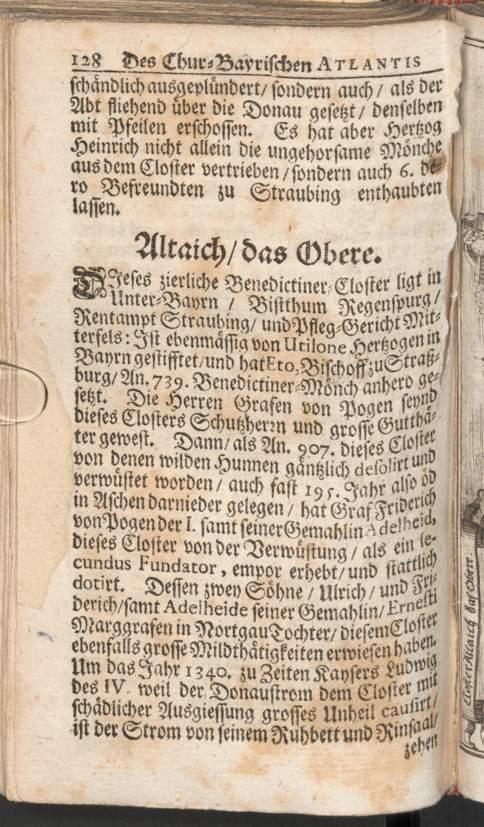 128 Des Chur-Bayrischen ATLANTIS
schändlich ausgeplündert/ sondern auch / als der
Abt fliehend über die Donau gesetzt / denselben
mit Pfeilen erschossen. Es hat aber Hertzog
Heinrich nicht allein die ungehorsame Mönche
aus dem Closter vertrieben / sondern auch 6. de-
ro Befreundten zu Straubing enthaubten
lassen.
Altaich/ das Obere.
DIeses zierliche Benedictiner-Closter ligt in
Unter-Bayrn / Bistthum Regenspurg/
Rentampt Straubing/ und Pfleg-Gericht Mit-
terfels: Ist ebenmässig von Utilone Hertzogen in
Bayrn gestifftet/und hat Eto, Bischoff zu Straß-
burg/ An. 739. Benedictiner-Mönch anhero ge-
setzt. Die Herren Grafen von Pogen seynd
dieses Closters Schutzherrn und grosse Gutthä-
ter gewest. Dann/ als An. 907. dieses Closter
von denen wilden Hunnen gäntzlich desolirt und
verwüstet worden / auch fast 195. Jahr also öd
in Aschen darnieder gelegen / hat Graf Friderich
von Pogen der I. samt seiner Gemahlin Adelheid,
dieses Closter von der Verwüstung / als ein se-
cundus Fundator, empor erhebt/ und stattlich
dotirt. Dessen zwey Söhne / Ulrich/ und Fri-
derich/samt Adelheide seiner Gemahlin/ Ernesti
Marggrafen in Nortgau Tochter/ diesem Closter
ebenfalls grosse Mildthätigkeiten erwiesen haben.
Um das Jahr 1340. zu Zeiten Kaysers Ludwig
des IV. weil der Donaustrom dem Closter mit
schädlicher Ausgiessung grosses Unheil causirt/
ist der Strom von seinem Ruhbett und Rinsaal/
zehen
Closter Altaich das Obere.